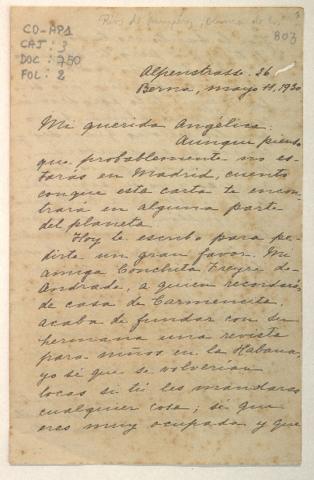 CO-AP1
CAJ: 3
DOC: 750
FOL: 2
803
Alpenstrasse. 26
Berna, mayo 11, 1930
Mi querida Angélica:
Aunque pienso
que probablemente no es-
tarás en Madrid, cuento
conque esta carta te encon-
trará en alguna parte
del planeta.
Hoy te escribo para pe-
dirte un gran favor. Mi
amiga Conchita Freyre de
Andrade, a quien recordarás
de casa de Carmencita,
acaba de fundar con su
hermana una revista
para niños en la Habana,
yo sé que se volverían
locas si tú les mandaras
cualquier cosa; sé que
eres muy ocupada y que